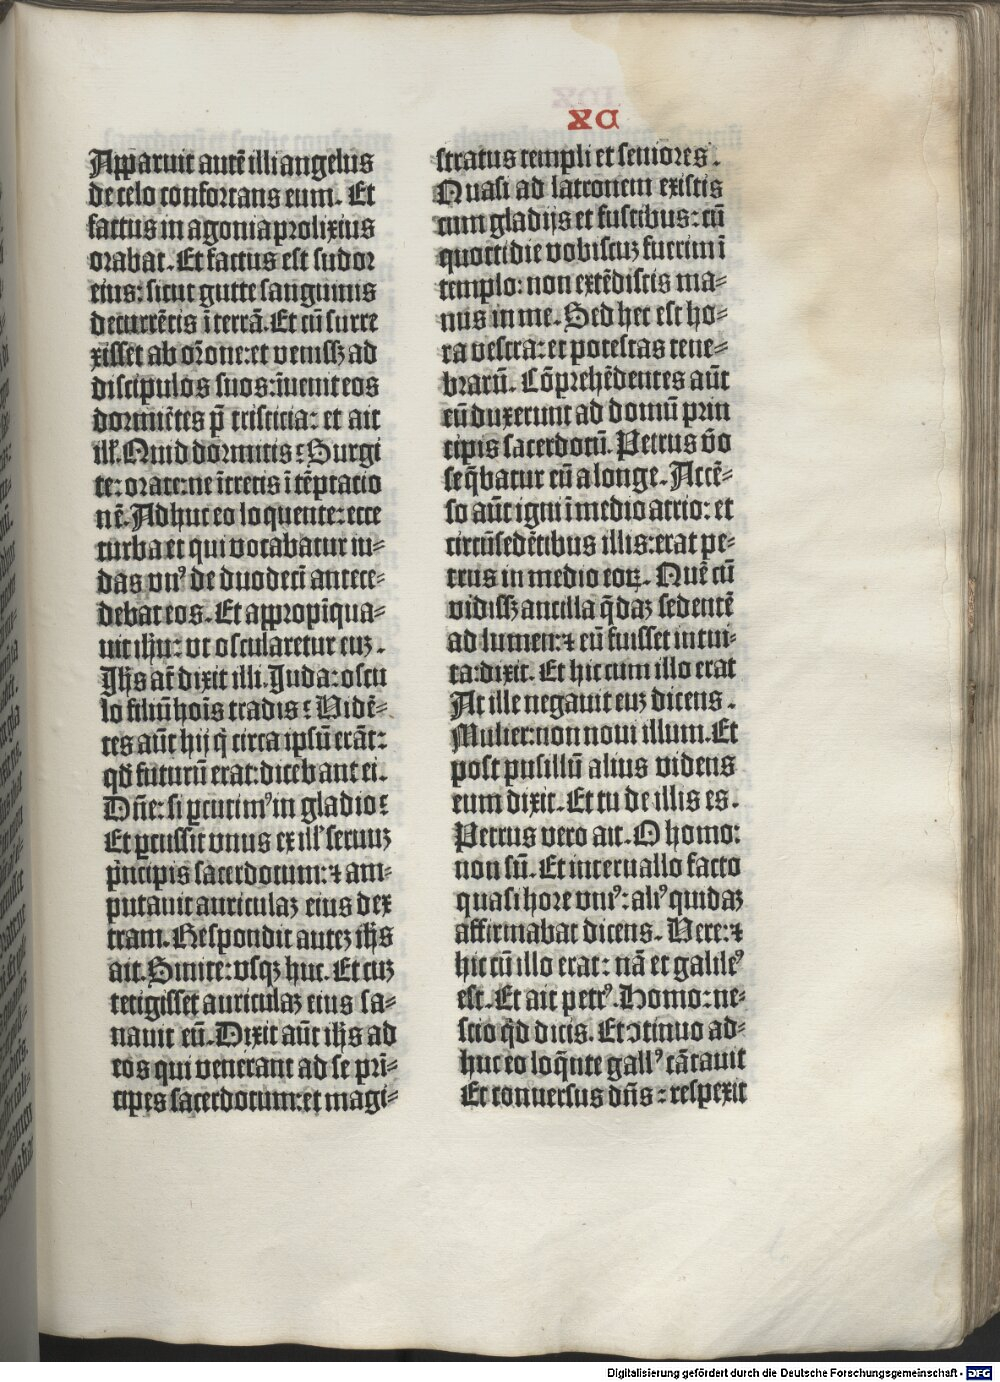 XC
Apparuit autē illi angelus
de celo confortans eum. Et
factus in agonia prolixius
orabat. Et factus est sudor
eius: sicut gutte sanguinis
decurrētis ī terrā. Et cū surre
xisset ab or̄one: et venissꝫ ad
discipulos suos: īuenit eos
dormiētes p̄ tristicia: et ait
ill'. Quid dormitis? Surgi
te: orate: ne ītretis ī tēptatio
nē. Adhuc eo loquente: ecce
turba et qui vocabatur iu-
das vnꝰ de duodecī antece-
debat eos. Et appropīqua-
uit ihu: vt oscularetur euꝫ.
Ihs at̄ dixit illi. Iuda: oscu
lo filiū hois tradis? Vidē-
tes aūt hij q̇ circa ipsū erāt:
qd̄ futurū erat: dicebant ei.
Dn̄e: si ꝑcutimꝰ in gladio?
Et ꝑcussit vnus ex ill' seruuꝫ
pͥncipis sacerdotum: ⁊ am-
putauit auriculaꝫ eius dex
tram. Respondit auteꝫ ihs
ait. Sinite: vsqꝫ huc. Et cuꝫ
tetigisset auriculaꝫ eius sa-
nauit eū. Dixit aūt ihs ad
eos qui venerant ad se prī-
cipes sacerdotum: et magi-
stratus templi et seniores.
Quasi ad latronem existis
cum gladijs et fustibus: cū
quottidie vobiscuꝫ fuerim ī
templo: non extēdistis ma-
nus in me. Sed hec est ho-
ra vestra: et potestas tene-
brarū. Cōprehēdentes aūt
eū duxerunt ad domū prin
cipis sacerdotū. Petrus v̄o
seq̄batur eū a longe. Accē-
so aūt igni ī medio atrio: et
circūsedētibus illis: erat pe-
trus in medio eoꝝ. Quē cū
vidissꝫ ancilla q̄daꝫ sedentē
ad lumen: ⁊ eū fuisset intui-
ta: dixit. Et hic cum illo erat
At ille negauit euꝫ dicens.
Mulier: non noui illum. Et
post pusillū alius videns
eum dixit. Et tu de illis es.
Petrus vero ait. O homo:
non sū. Et interuallo facto
quasi hore vniꝰ: aliꝰ quidaꝫ
affirmabat dicens. Vere: ⁊
hic cū illo erat: nā et galileꝰ
est. Et ait petrꝰ. Homo: ne-
scio qd̄ dicis. Et ꝯtinuo ad-
huc eo loq̄nte gallꝰ cātauit
Et conuersus dn̄s: respexit
Digitalisierung gefördert durch die Deutsche Forschungsgemeinschaft - DFG